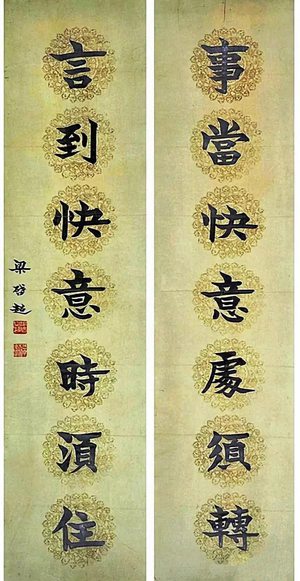 事當快意處須轉
言到快意時須住
梁啓超